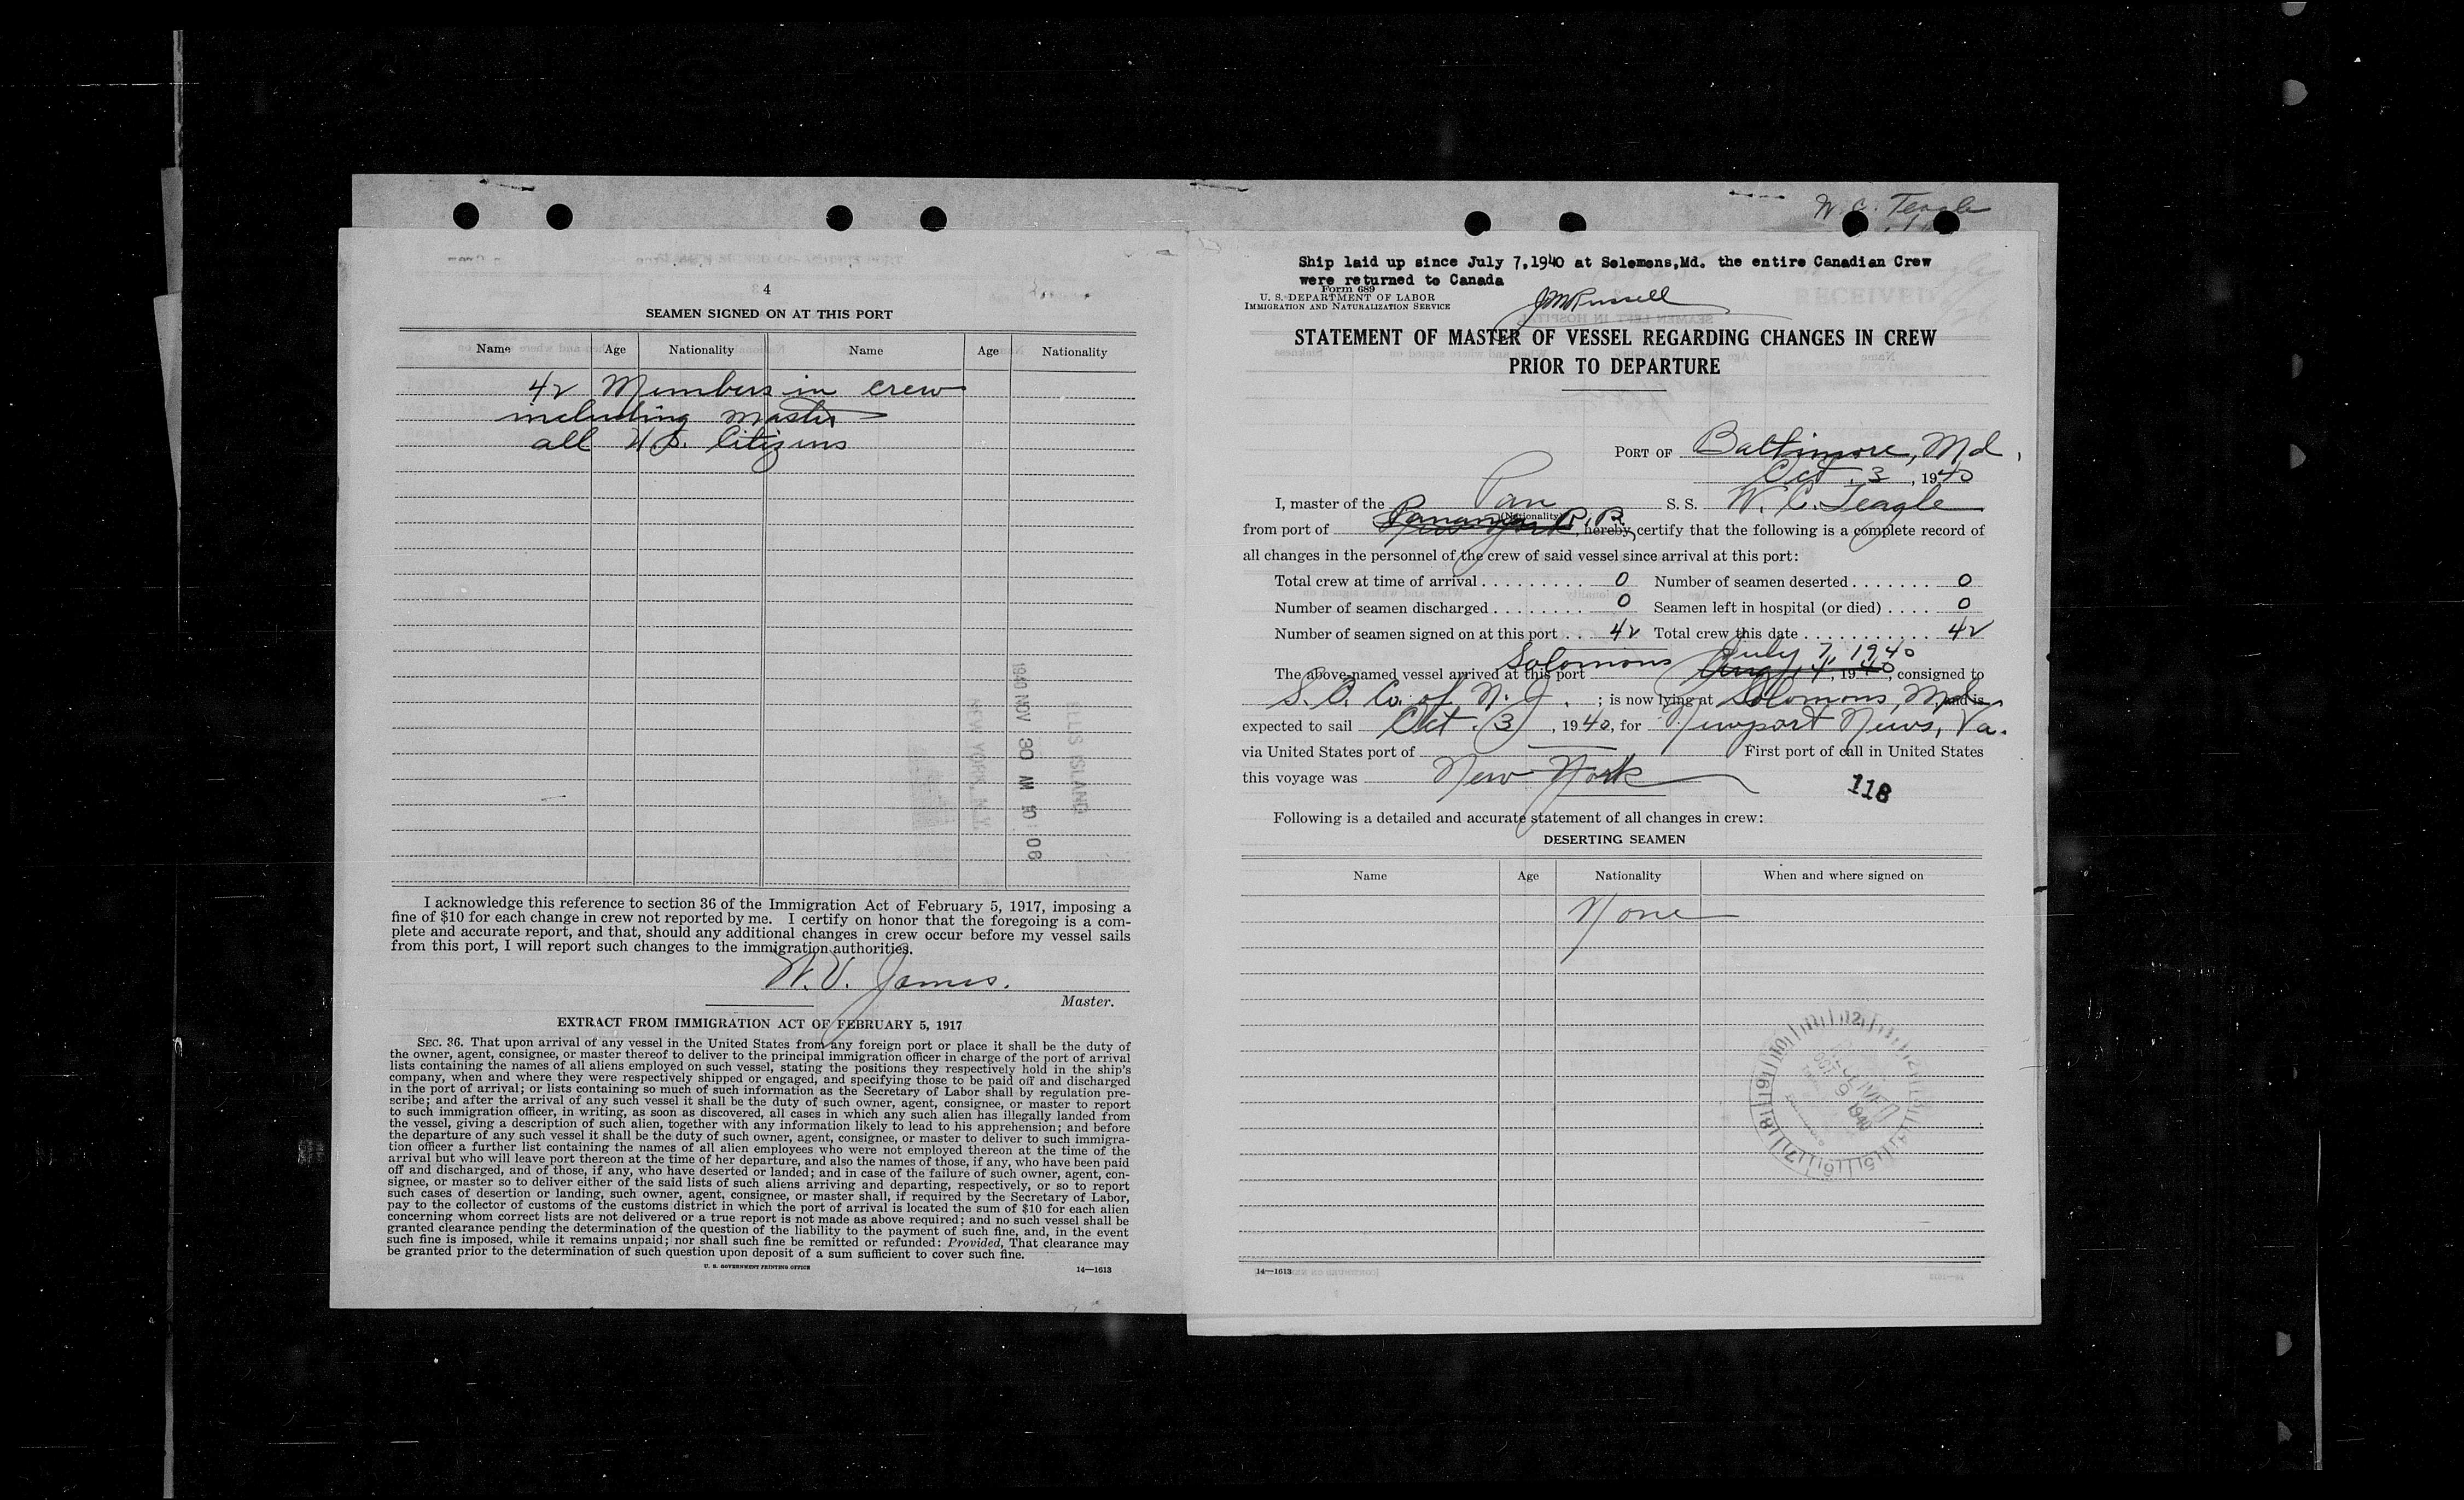 4
SEAMEN SIGNED ON AT THIS PORT
Name Age Nationality Name Age Nationality
42 Members in crew
including Master
all U.S. Citizens
1940 NOV 30 M 10 06
ELLIS ISLAND
NEW YORK, N.Y.
I acknowledge this reference to section 36 of the Immigration Act of February 5, 1917, imposing a
fine of $10 for each change in crew not reported by me. I certify on honor that the foregoing is a com-
plete and accurate report, and that, should any additional changes in crew occur before my vessel sails
from this port, I will report such changes to the immigration authorities.
W. V. James.
Master.
EXTRACT FROM IMMIGRATION ACT OF FEBRUARY 5, 1917
SEC. 36. That upon arrival of any vessel in the United States from any foreign port or place it shall be the duty of
the owner, agent, consignee, or master thereof to deliver to the principal immigration officer in charge of the port of arrival
lists containing the names of all aliens employed on such vessel, stating the positions they respectively hold in the ship's
company, when and where they were respectively shipped or engaged, and specifying those to be paid off and discharged
in the port of arrival; or lists containing so much of such information as the Secretary of Labor shall by regulation pre-
scribe; and after the arrival of any such vessel it shall be the duty of such owner, agent, consignee, or master to report
to such immigration officer, in writing, as soon as discovered, all cases in which any such alien has illegally landed from
the vessel, giving a description of such alien, together with any information likely to lead to his apprehension; and before
the departure of any such vessel it shall be the duty of such owner, agent, consignee, or master to deliver to such immigra-
tion officer a further list containing the names of all alien employees who were not employed thereon at the time of the
arrival but who will leave port thereon at the time of her departure, and also the names of those, if any, who have been paid
off and discharged, and of those, if any, who have deserted or landed; and in case of the failure of such owner, agent, con-
signee, or master so to deliver either of the said lists of such aliens arriving and departing, respectively, or so to report
such cases of desertion or landing, such owner, agent, consignee, or master shall, if required by the Secretary of Labor,
pay to the collector of customs of the customs district in which the port of arrival is located the sum of $10 for each alien
concerning whom correct lists are not delivered or a true report is not made as above required; and no such vessel shall be
granted clearance pending the determination of the question of the liability to the payment of such fine, and, in the event
such fine is imposed, while it remains unpaid; nor shall such fine be remitted or refunded: Provided, That clearance may
be granted prior to the determination of such question upon deposit of a sum sufficient to cover such fine.
U. S. GOVERNMENT PRINTING OFFICE
14—1613
W. C. Teagle
Ship laid up since July 7,1940 at Solomons,Md. the entire Canadian Crew
were returned to Canada
Form 689
U. S. DEPARTMENT OF LABOR
IMMIGRATION AND NATURALIZATION SERVICE
J M Russell
STATEMENT OF MASTER OF VESSEL REGARDING CHANGES IN CREW
PRIOR TO DEPARTURE
PORT OF Baltimore, Md.
Oct. 3, 1940
I, master of the Pan S. S. W. C. Teagle
(Nationality)
from port of New York, hereby certify that the following is a complete record of
all changes in the personnel of the crew of said vessel since arrival at this port:
Total crew at time of arrival . . . . . . . . . 0 Number of seamen deserted . . . . . . . 0
Number of seamen discharged . . . . . . . . 0 Seamen left in hospital (or died) . . . . 0
Number of seamen signed on at this port . . 42 Total crew this date . . . . . . . . . . . 42
Solomons July 7, 1940
The above-named vessel arrived at this port Aug. 4, 1940, consigned to
S. O. Co. of N. J. ; is now lying at Solomons, Md. and is
expected to sail Oct. 3, 1940, for Newport News, Va.
via United States port of First port of call in United States
this voyage was New York
118
Following is a detailed and accurate statement of all changes in crew:
DESERTING SEAMEN
Name Age Nationality When and where signed on
None
RECEIVED
OCT 9 1940
14—1613